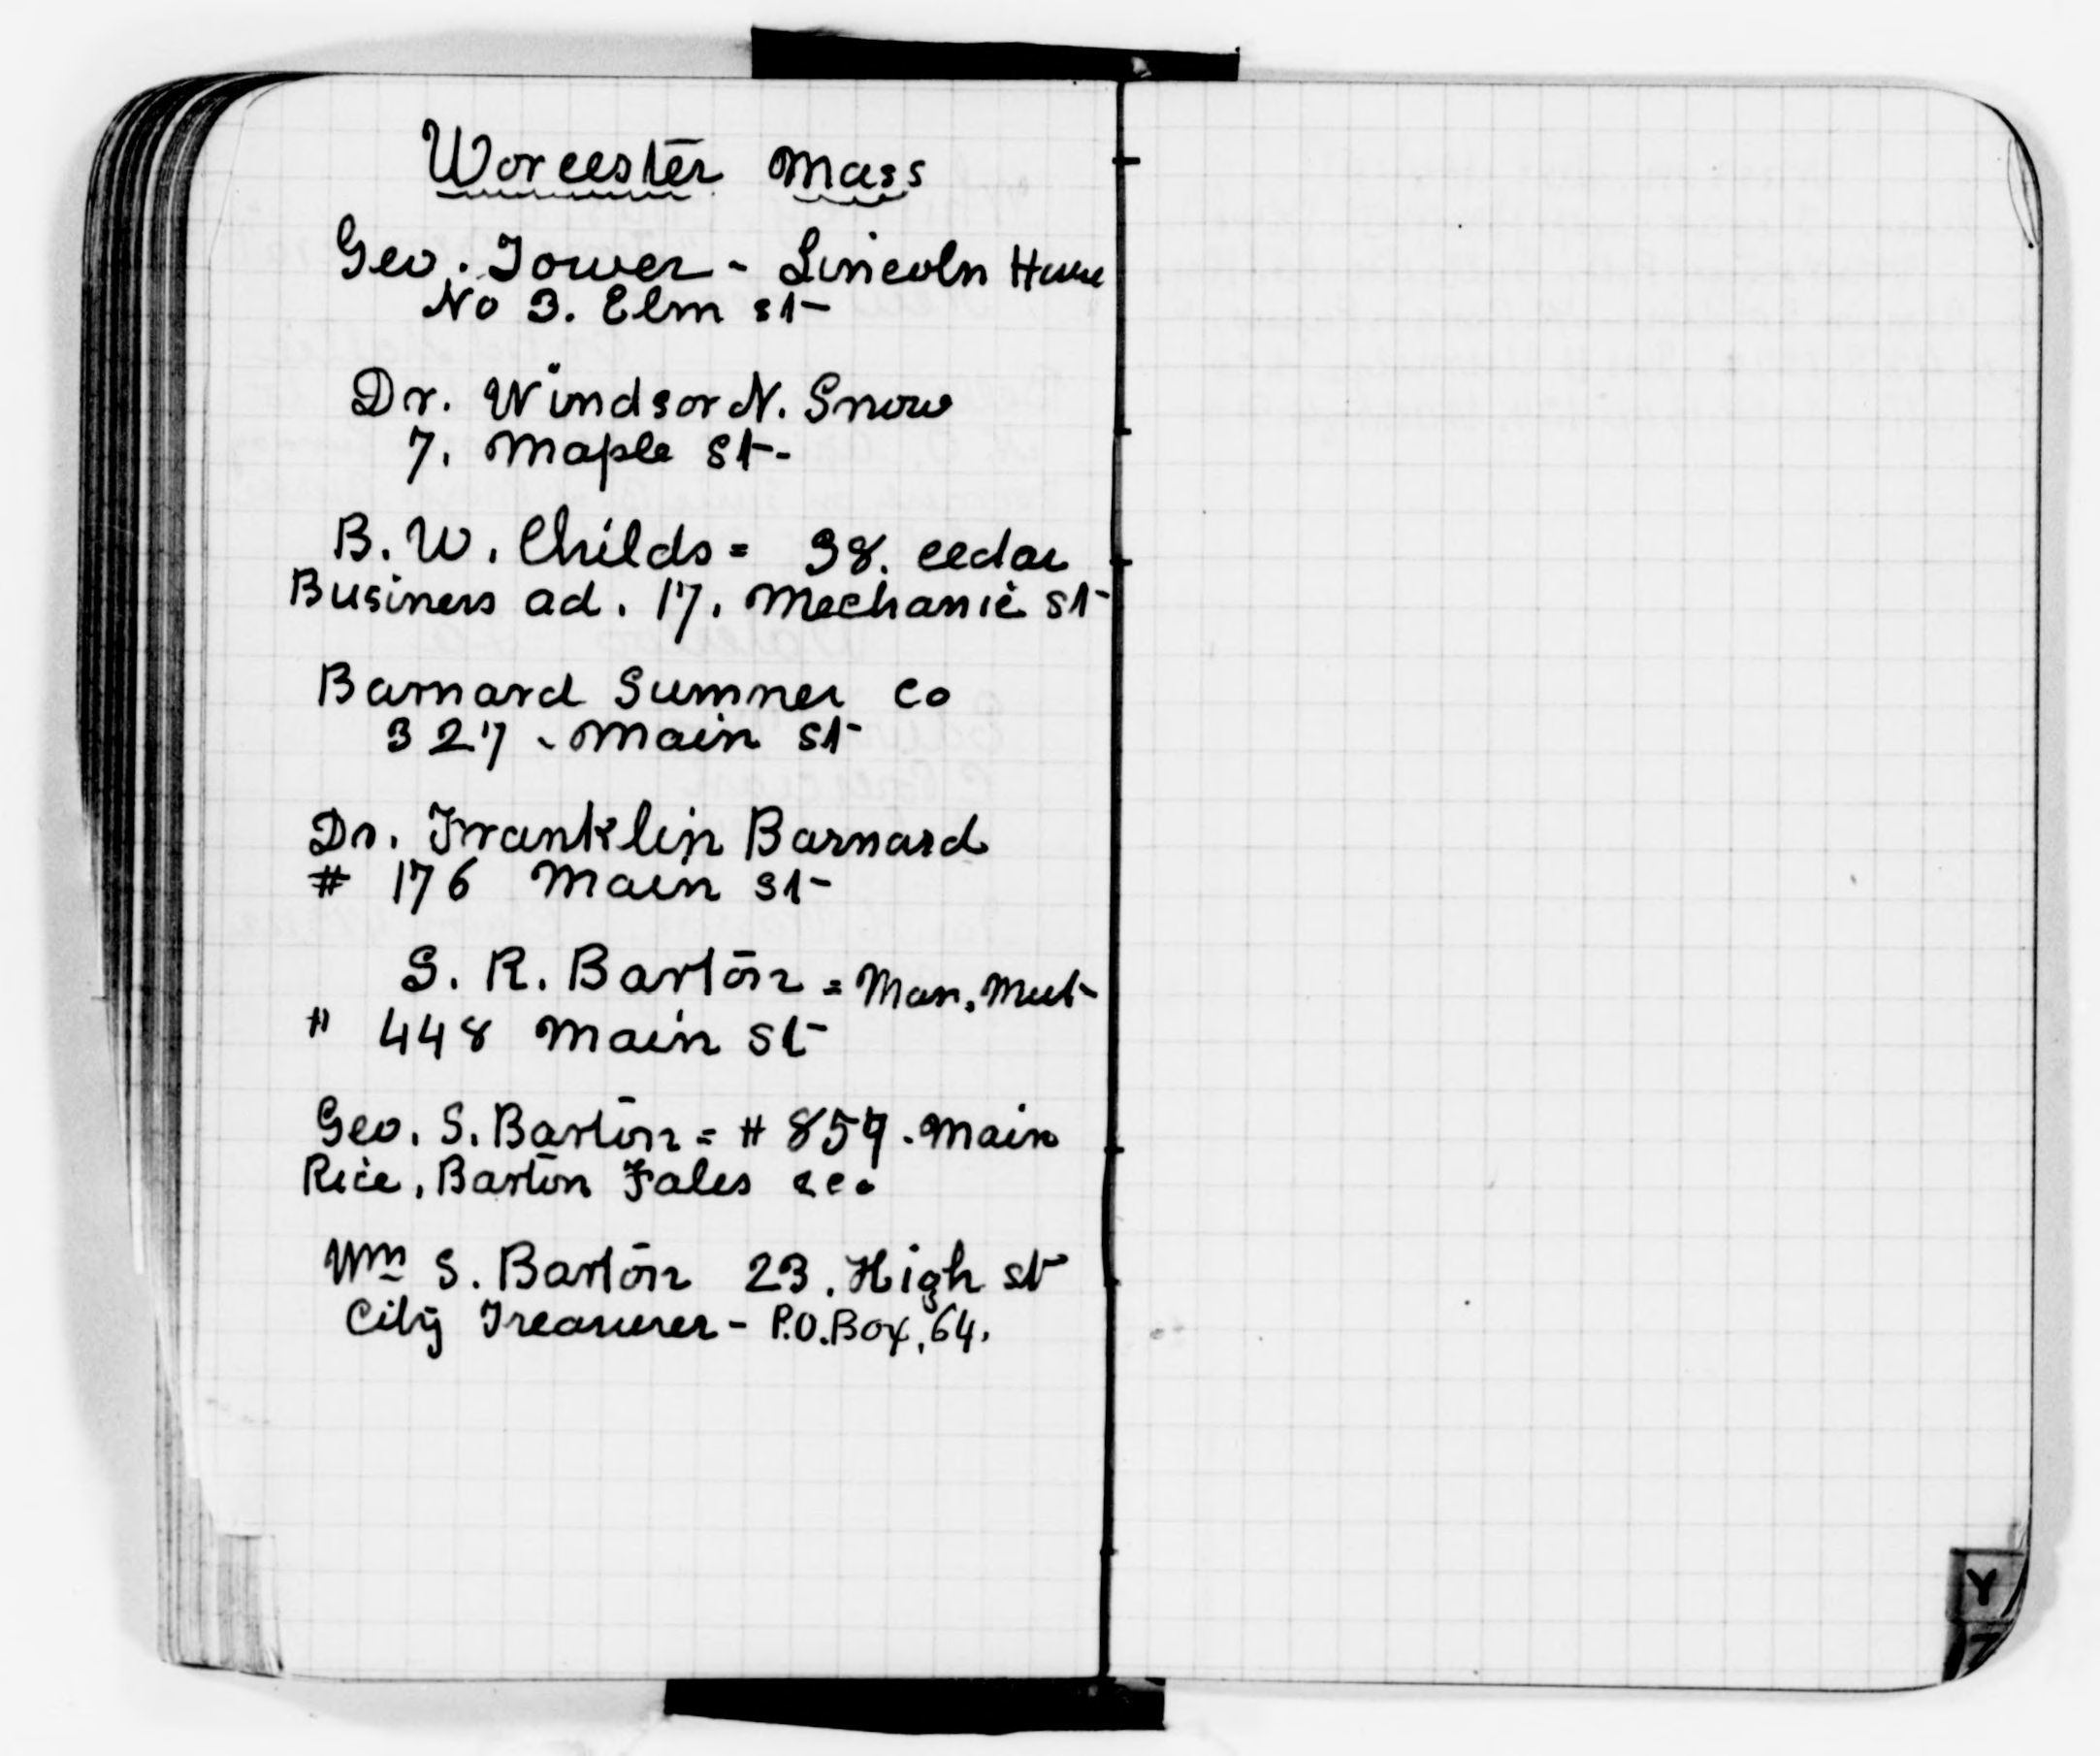 Worcester Mass
Geo. Tower - Lincoln House
No 3. Elm st
Dr. Windsor N. Snow
7. Maple St-
B. W. Childs = 38. cedar
Business ad. 17. Mechanic st
Barnard Sumner Co
327 - Main St
Dr. Franklin Barnard
# 176 Main st
S. R. Barton = Man. Mut-
# 448 Main St
Geo. S. Barton = # 859. Main
Rice, Barton Fales & co
Wm S. Barton 23. High st
City Treasurer - P.O. Box, 64.
Y
Z